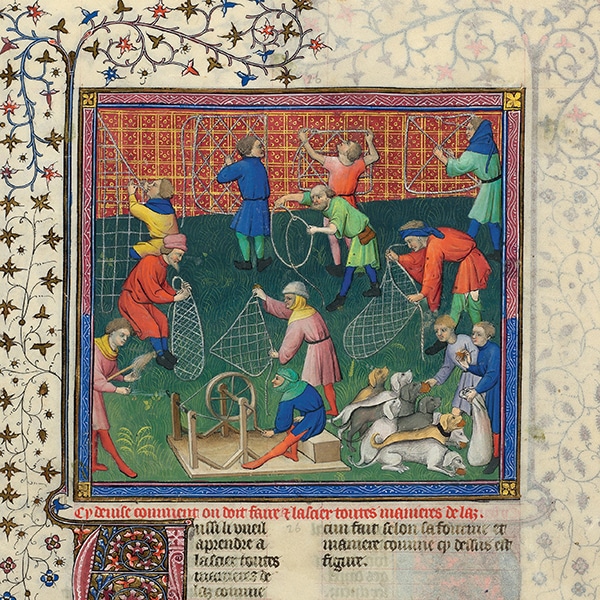 Cy deuise comment on doit faire & lascier toutes manieres de laz.
ussi li vueil
aprendre a
lascier toutes
manieres de
laz comme
cun fait selon sa fourme et
maniere comme cy dessus est
figure.